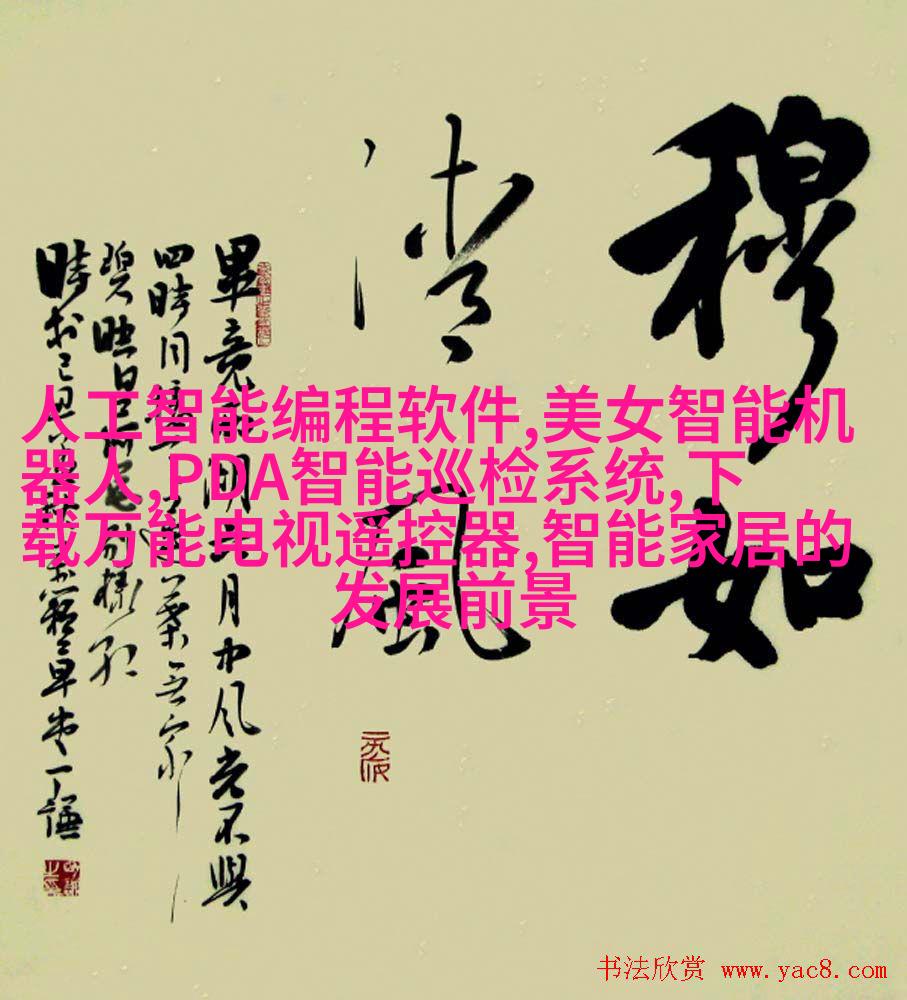 穆如
清風
畢竟西湖六月中风光不與
四時同接天蓮葉无窮
碧映日荷花别樣红
人工智能编程软件,美女智能机
器人,PDA智能巡检系统,下
载万能电视遥控器,智能家居的
发展前景
书法欣赏 www.yac8.com